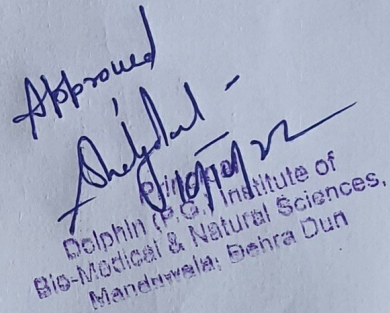 Approved
Principal
Dolphin (P.G.) Institute of
Bio-Medical & Natural Sciences,
Manduwala, Dehra Dun